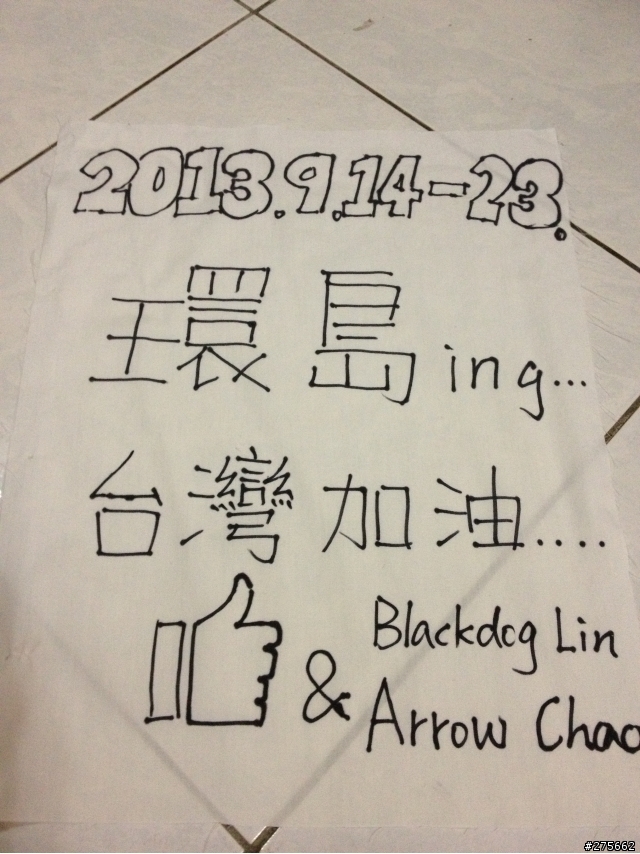 2013.9.14-23.
環島ing...
台灣加油....
& Blackdog Lin
Arrow Chao
#275662